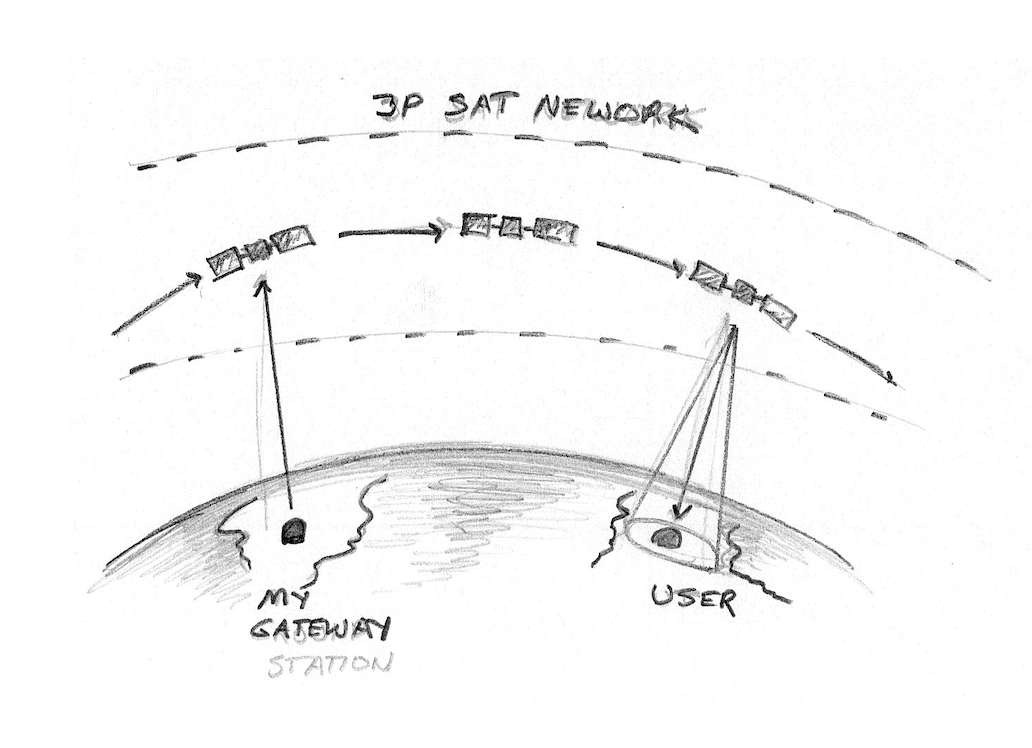 3P SAT NEWORK
MY
GATEWAY
STATION
USER